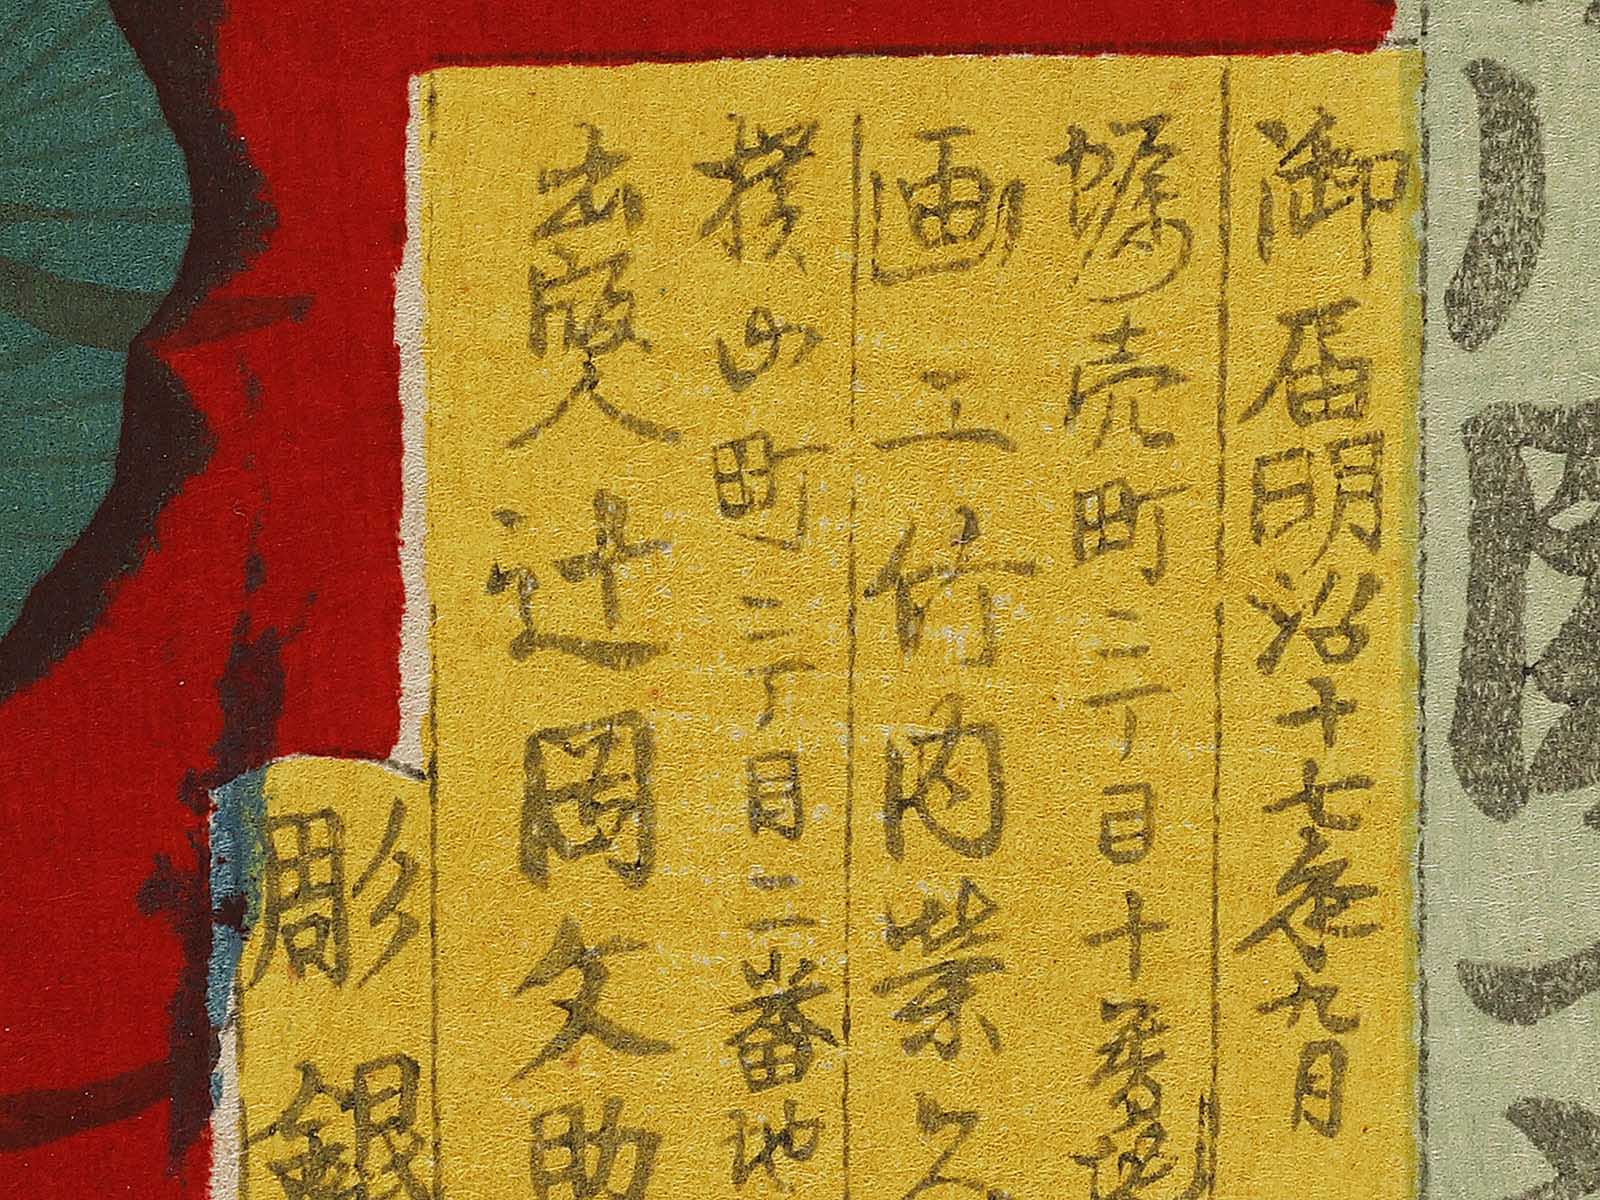 御届明治十七年九月
蠣売町三丁目十番地
画工竹内栄久
横山町三丁目二番地
出版人
辻岡文助
彫銀